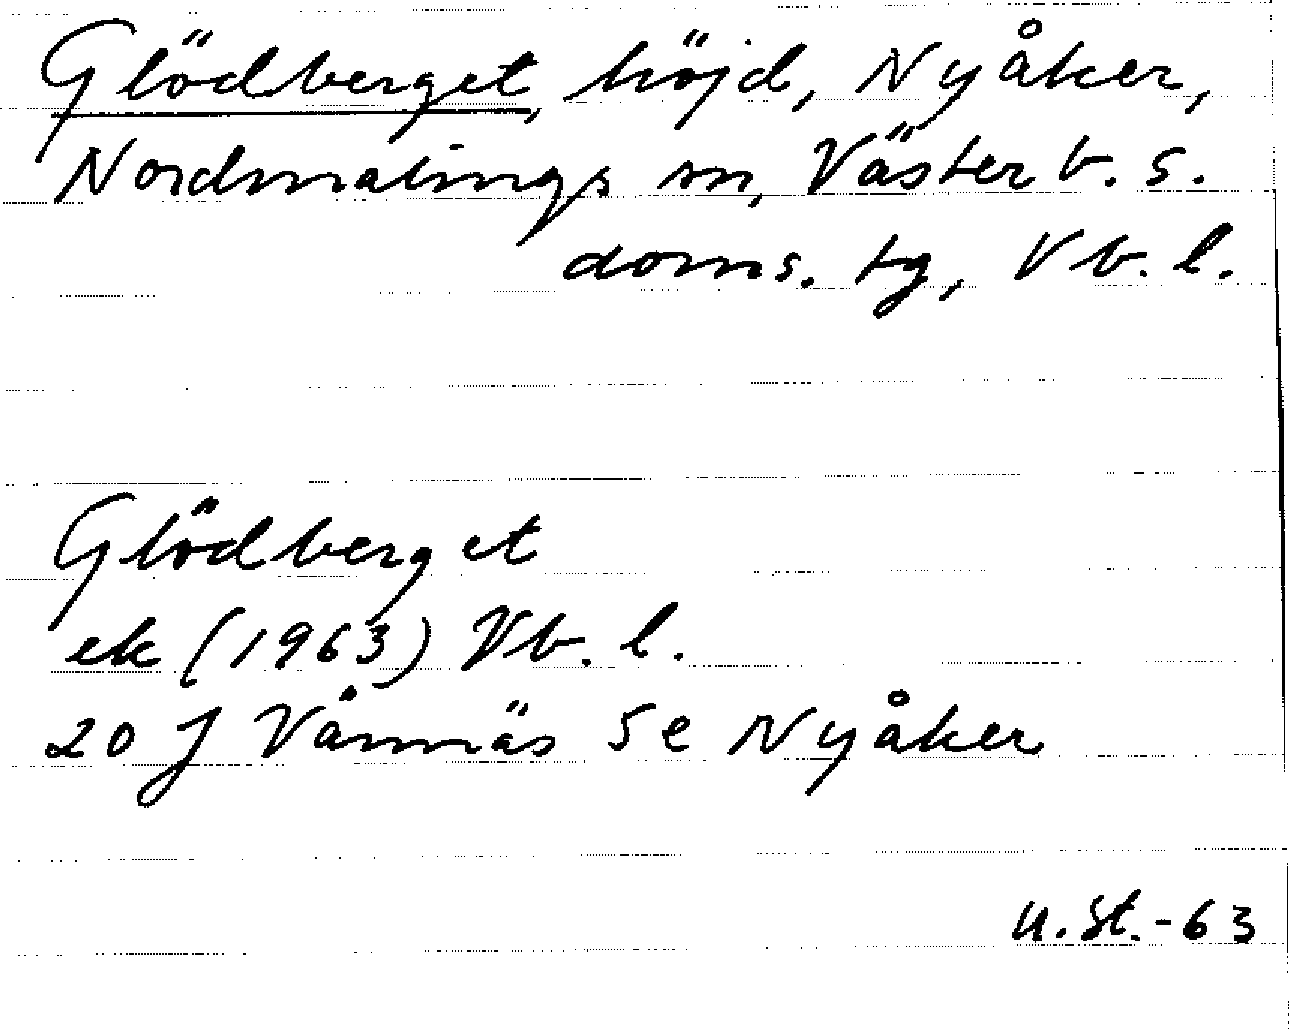 Glödberget, höjd, Nyåker,
Nordmalings sn, Västerb. s.
doms. tg, Vb. l.
Glödberget
ek (1963) Vb. l.
20 J Vännäs 5e Nyåker
u. St.-63